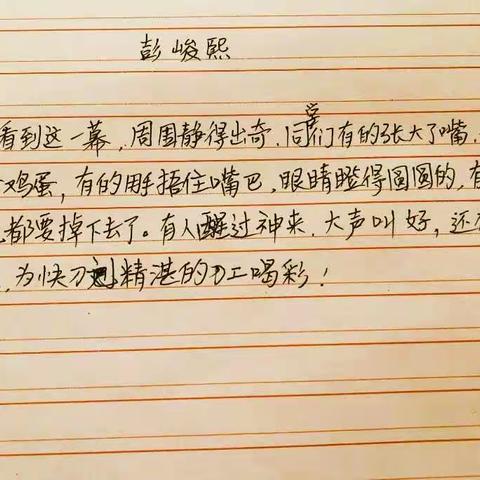 彭峻熙
看到这一幕,周围静得出奇,同学们有的张大了嘴,
鸡蛋,有的用手捂住嘴巴,眼睛瞪得圆圆的,有
都要掉下去了。有人醒过神来,大声叫好,还
,为快刀刘精湛的刀工喝彩!